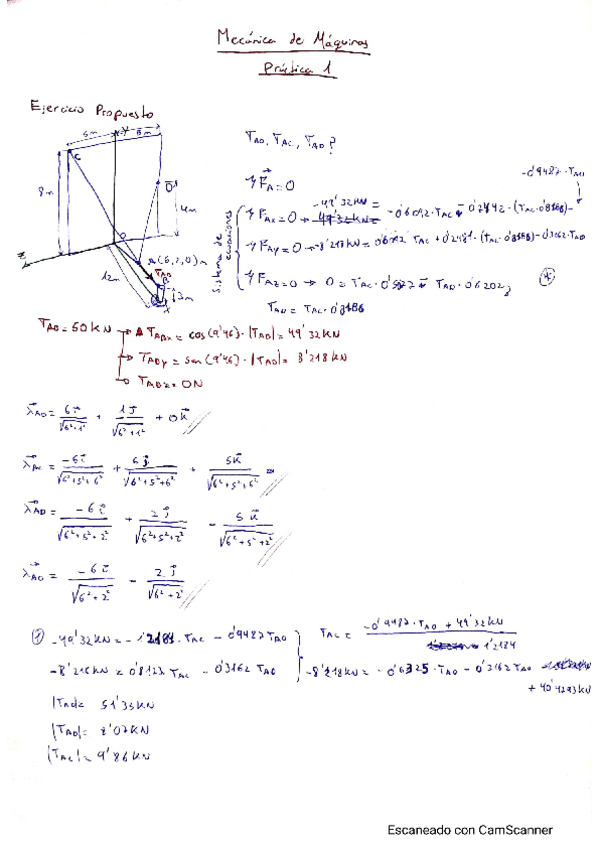 Mecánica de Máquinas
Práctica 1
Ejercicio Propuesto
6m
5m
y
C
8m
D
4m
O
A(6,2,0)m
TAB
B
12m
3m
x
z
TAD, TAC, TAO?
Sistema de ecuaciones
FA=0
-49'32KN =
FAx=0
-0'9487·TAO
FAy=0 → -8'218KN =
FAz=0 → 0 = TAC·0'5077
TAD·0'6202
TAD = TAC·0'8186
TAB=50KN → TABx = cos(9'46)·|TAB|= 49'32KN
→ TABy = sen(9'46)·|TAB|= 8'218KN
→ TABz= 0N
λAB = 6i/√6²+1² + 1j/√6²+1² + 0k
λAC = -6i/√6²+5²+6² + 6j/√6²+5²+6² + 5k/√6²+5²+6²
λAD = -6i/√6²+5²+2² + 2j/√6²+5²+2² - 5k/√6²+5²+2²
λAO = -6i/√6²+2² - 2j/√6²+2²
① -49'32KN = -1'2184·TAC - 0'9487TAO
-8'218KN = 0'8123 TAC - 0'3162 TAO
TAC = -0'9487·TAO + 49'32KN / 1'2184
-8'218KN = -0'6325·TAO - 0'3162 TAO
+ 40'4293KN
|TAO|= 51'33KN
|TAD|= 8'07KN
|TAC|= 9'86KN
Escaneado con CamScanner